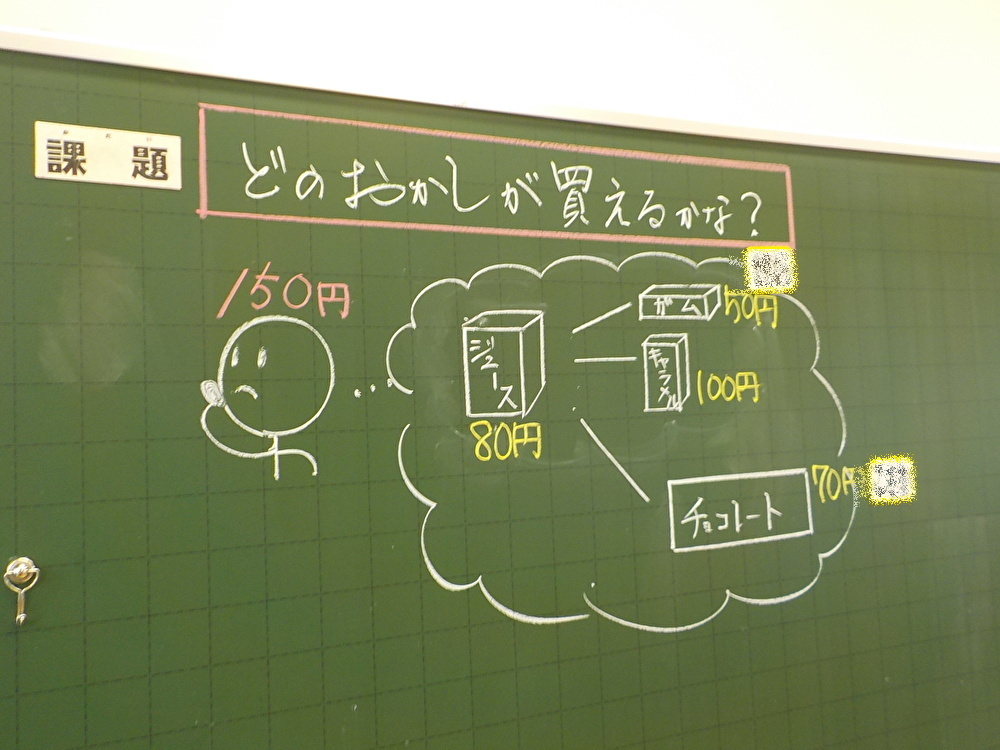 課題
どのおかしが買えるかな？
150円
ジュース
80円
ガム
50円
キャラメル
100円
チョコレート
70円